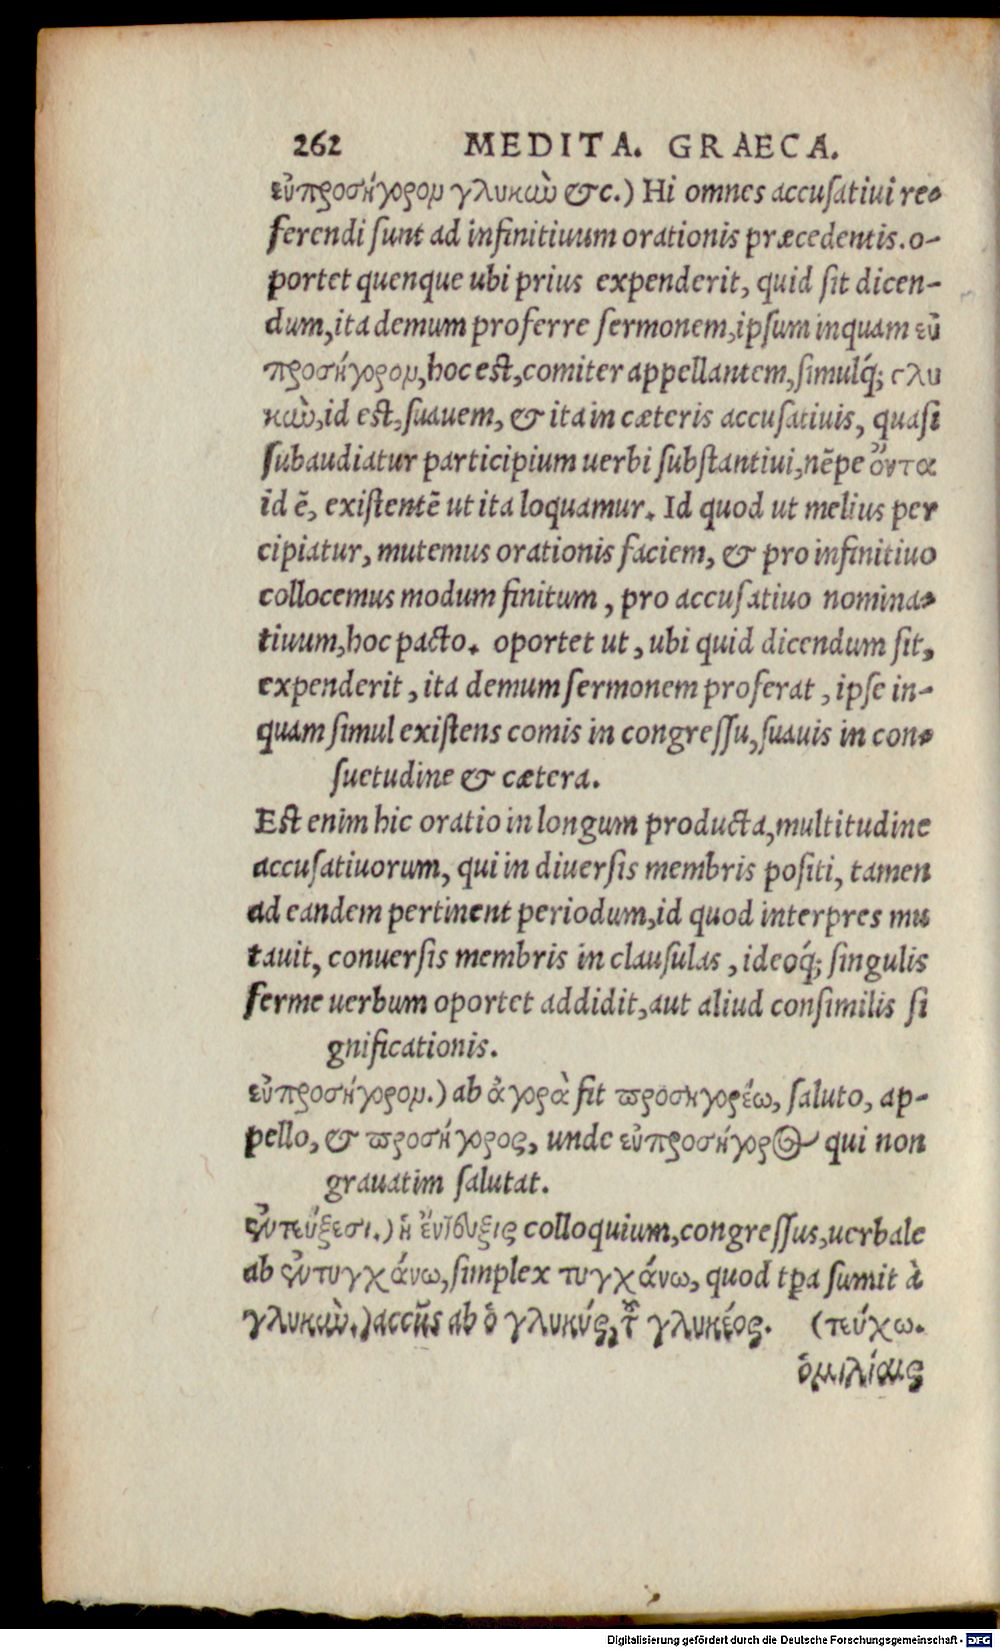 262 MEDITA. GRAECA.
εὐπροσήγορον γλυκιὼ &c.) Hi omnes accuſatiui re-
ferendi ſunt ad infinitiuum orationis præcedentis. o-
portet quenque ubi prius expenderit, quid ſit dicen-
dum, ita demum proferre ſermonem, ipſum inquam εὐ
προσήγορον, hoc eſt, comiter appellantem, ſimulq́; γλυ
κιὼ, id eſt, ſuauem, & ita in cæteris accuſatiuis, quaſi
ſubaudiatur participium uerbi ſubſtantiui, nẽpe ὄντα
id ẽ, exiſtentẽ ut ita loquamur. Id quod ut melius per
cipiatur, mutemus orationis faciem, & pro infinitiuo
collocemus modum finitum, pro accuſatiuo nomina-
tiuum, hoc pacto. oportet ut, ubi quid dicendum ſit,
expenderit, ita demum ſermonem proferat, ipſe in-
quam ſimul exiſtens comis in congreſſu, ſuauis in con-
ſuetudine & cætera.
Eſt enim hic oratio in longum producta, multitudine
accuſatiuorum, qui in diuerſis membris poſiti, tamen
ad eandem pertinent periodum, id quod interpres mu
tauit, conuerſis membris in clauſulas, ideoq́; ſingulis
ferme uerbum oportet addidit, aut aliud conſimilis ſi
gnificationis.
εὐπροσήγορον.) ab ἀγορὰ fit προσηγορέω, ſaluto, ap-
pello, & προσήγορος, unde εὐπροσήγορος qui non
grauatim ſalutat.
ἐντεύξεσι.) ἡ ἔντευξις colloquium, congreſſus, uerbale
ab ἐντυγχάνω, ſimplex τυγχάνω, quod tꝑa ſumit à
γλυκιὼ.) accũs ab ὁ γλυκύς, τ͂ γλυκέος. (τεύχω.
ὁμιλίαις
Digitalisierung gefördert durch die Deutsche Forschungsgemeinschaft - DFG